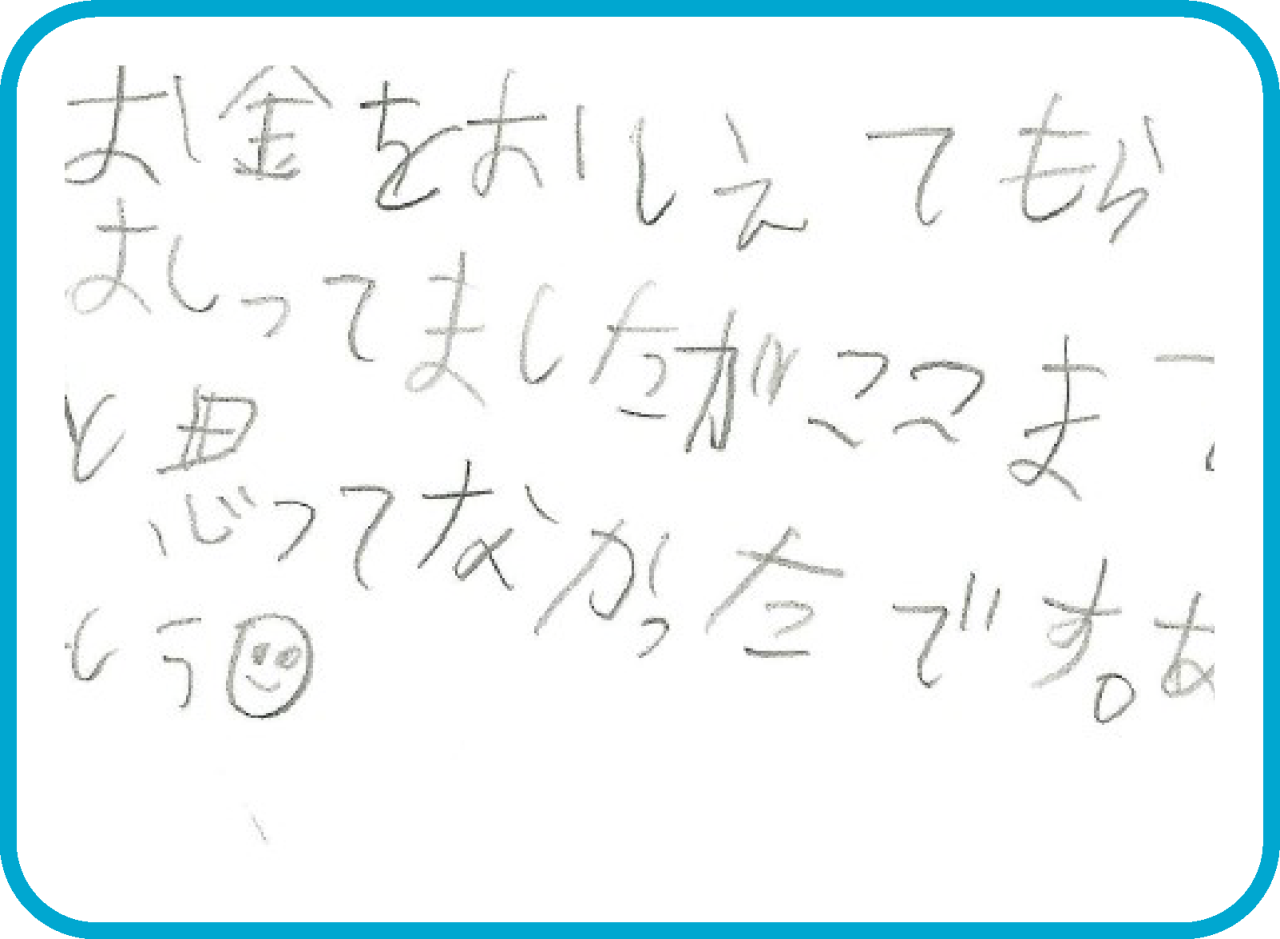 お金をおしえてもら
よしってましたがここま
と思ってなかったです。あ
とう